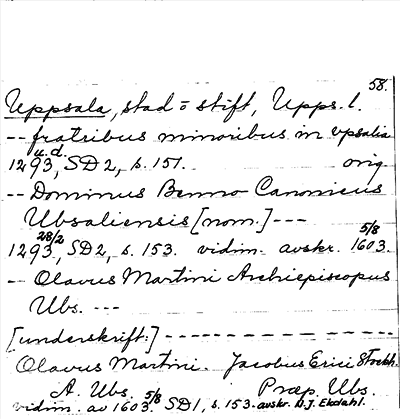 58.
Uppsala, stad o stift, Upps. l.
-- fratribus minoribus in vpsalia
1293, u.d. SD2, s. 151. orig
-- Dominus Benno Canonicus
Ubsaliensis [nom.] ---
1293, 28/2 SD2, s. 153. vidim. avskr. 5/8 1603.
-- Olavus Martini Archiepiscopus
Ubs. ---
[underskrift:] -----------
Olavus Martini. Jacobus Erici Stockh.
A. Ubs. Præp. Ubs.
vidim. av 5/8 1603. SD1, s. 153. avskr. H.J. Ekdahl.